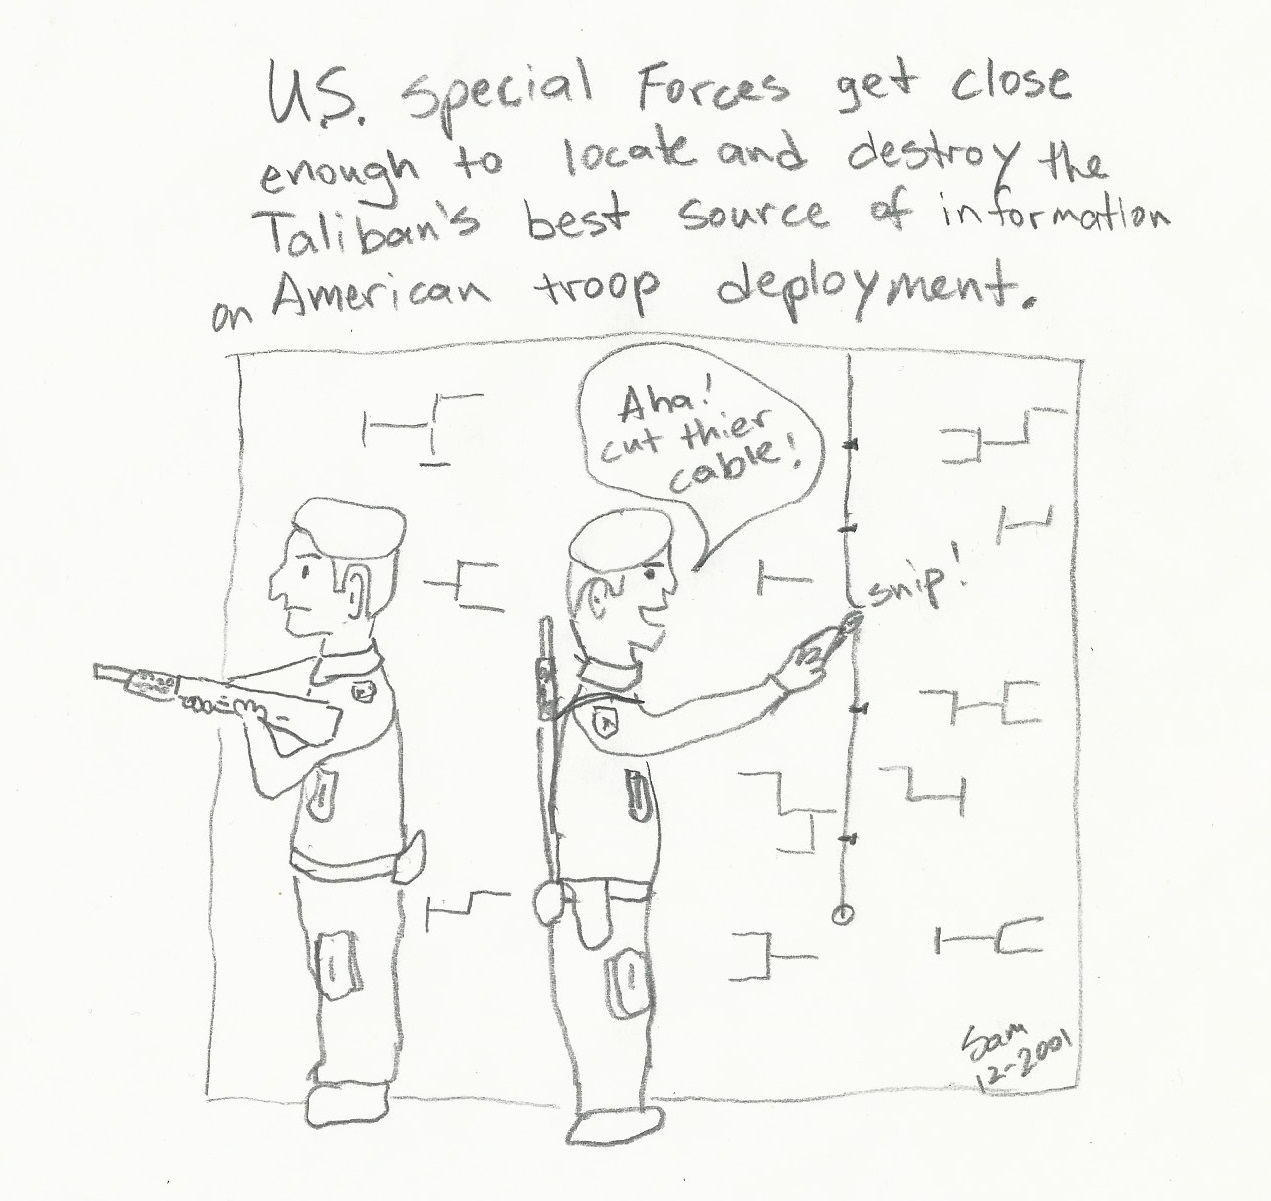 U.S. special Forces get close
enough to locate and destroy the
Taliban's best source of information
on American troop deployment.
Aha!
cut thier
cable!
snip!
Sam
12-2001